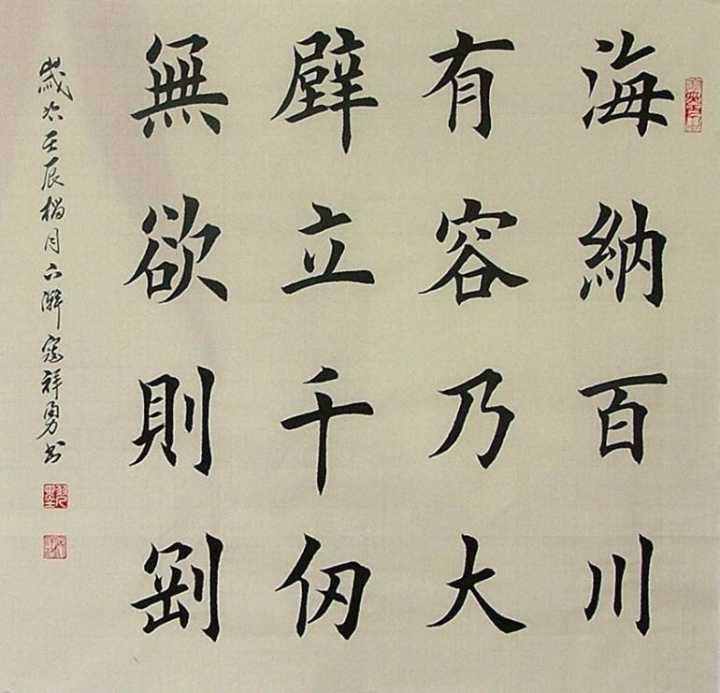 海納百川
有容乃大
壁立千仞
無欲則剛
歲次壬辰榴月 祥勇書